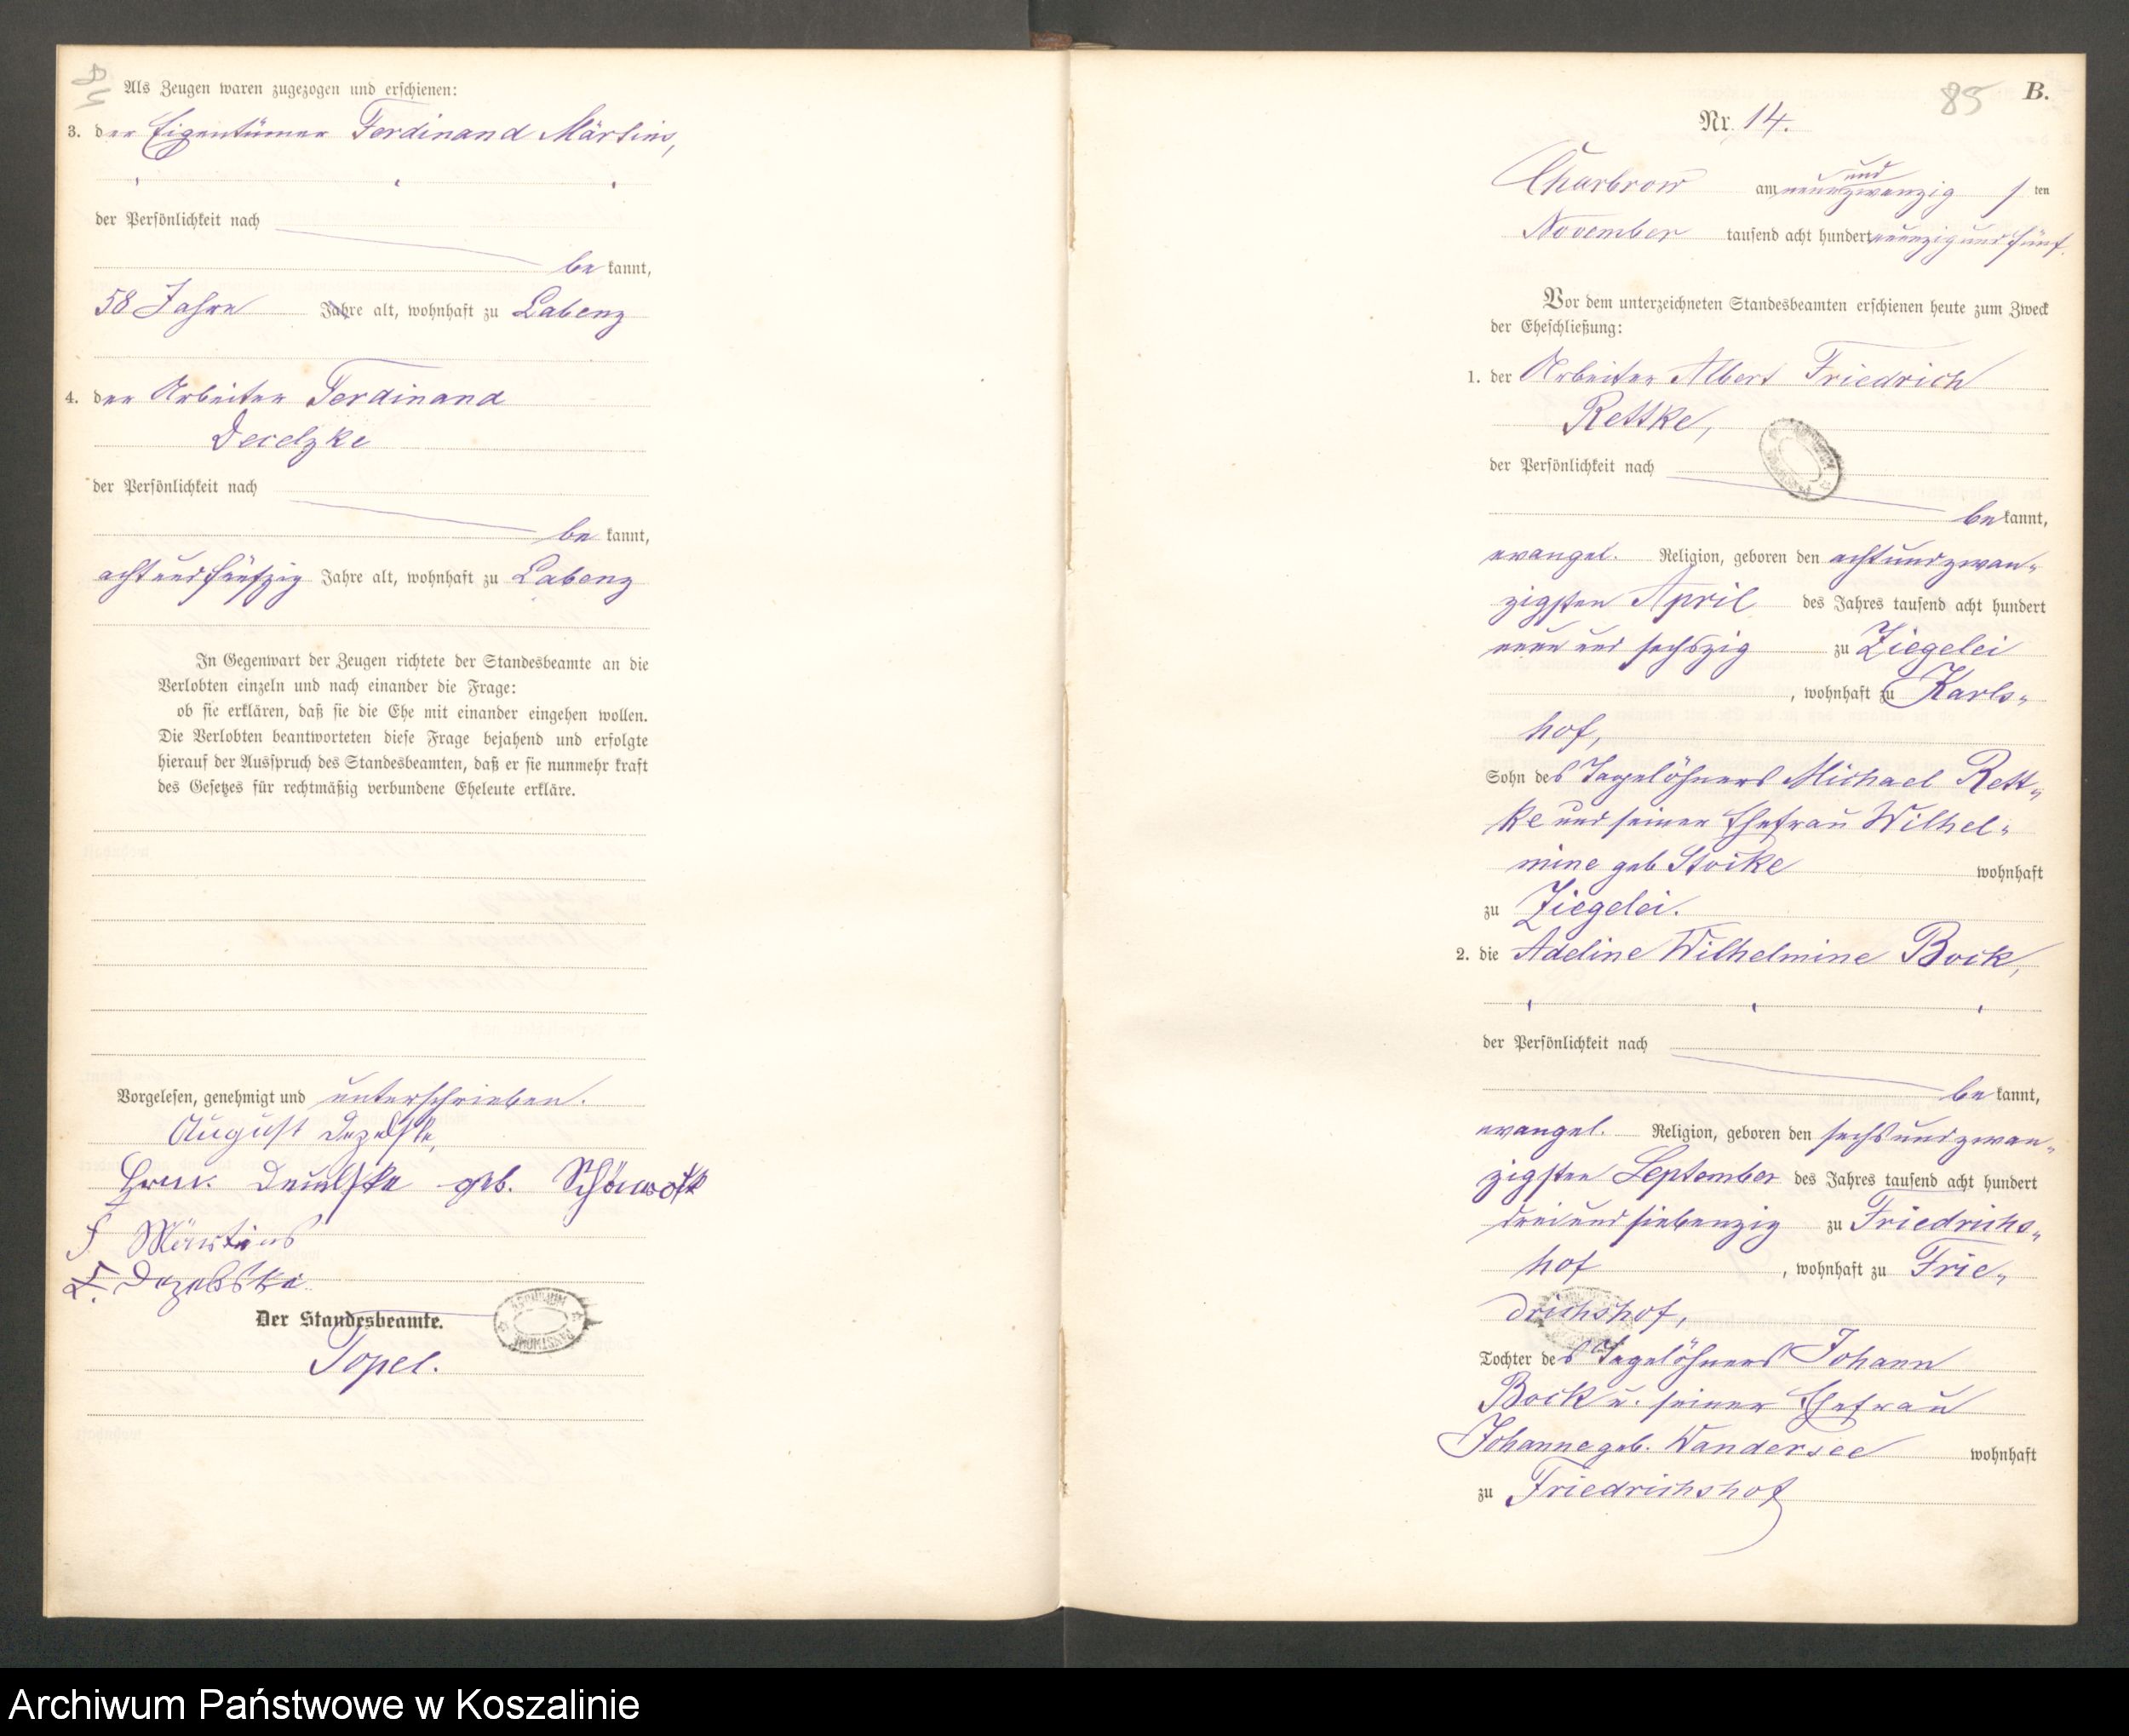 84
Als Zeugen waren zugezogen und erschienen:
3. der Eigentümer Ferdinand Märtins,
der Persönlichkeit nach
be kannt,
58 Jahre Jahre alt, wohnhaft zu Labenz
4. der Arbeiter Ferdinand
Decelzke
der Persönlichkeit nach
be kannt,
achtundfünfzig Jahre alt, wohnhaft zu Labenz
In Gegenwart der Zeugen richtete der Standesbeamte an die
Verlobten einzeln und nach einander die Frage:
ob sie erklären, daß sie die Ehe mit einander eingehen wollen.
Die Verlobten beantworteten diese Frage bejahend und erfolgte
hierauf der Ausspruch des Standesbeamten, daß er sie nunmehr kraft
des Gesetzes für rechtmäßig verbundene Eheleute erkläre.
Vorgelesen, genehmigt und unterschrieben.
August
geb.
F Märtins
F.
Der Standesbeamte.
Topel.
85 B.
Nr. 14.
Charbrow am neunundzwanzig ten
November tausend acht hundert neunzig und fünf.
Vor dem unterzeichneten Standesbeamten erschienen heute zum Zweck
der Eheschließung:
1. der Arbeiter Albert Friedrich
Rettke,
der Persönlichkeit nach
be kannt,
evangel. Religion, geboren den achtundzwan-
zigsten April des Jahres tausend acht hundert
neun und sechszig zu Ziegelei
, wohnhaft zu Karls-
hof,
Sohn des Tagelöhners Michael Rett-
ke und seiner Ehefrau Wilhel-
mine geb Stoike wohnhaft
zu Ziegelei.
2. die Adeline Wilhelmine Bock,
der Persönlichkeit nach
be kannt,
evangel. Religion, geboren den sechsundzwan-
zigsten September des Jahres tausend acht hundert
dreiundsiebenzig zu Friedrichs-
hof , wohnhaft zu Frie-
drichshof,
Tochter des Tagelöhners Johann
Bock u. seiner Ehefrau
Johanne geb. Wandersee wohnhaft
zu Friedrichshof
Archiwum Państwowe w Koszalinie